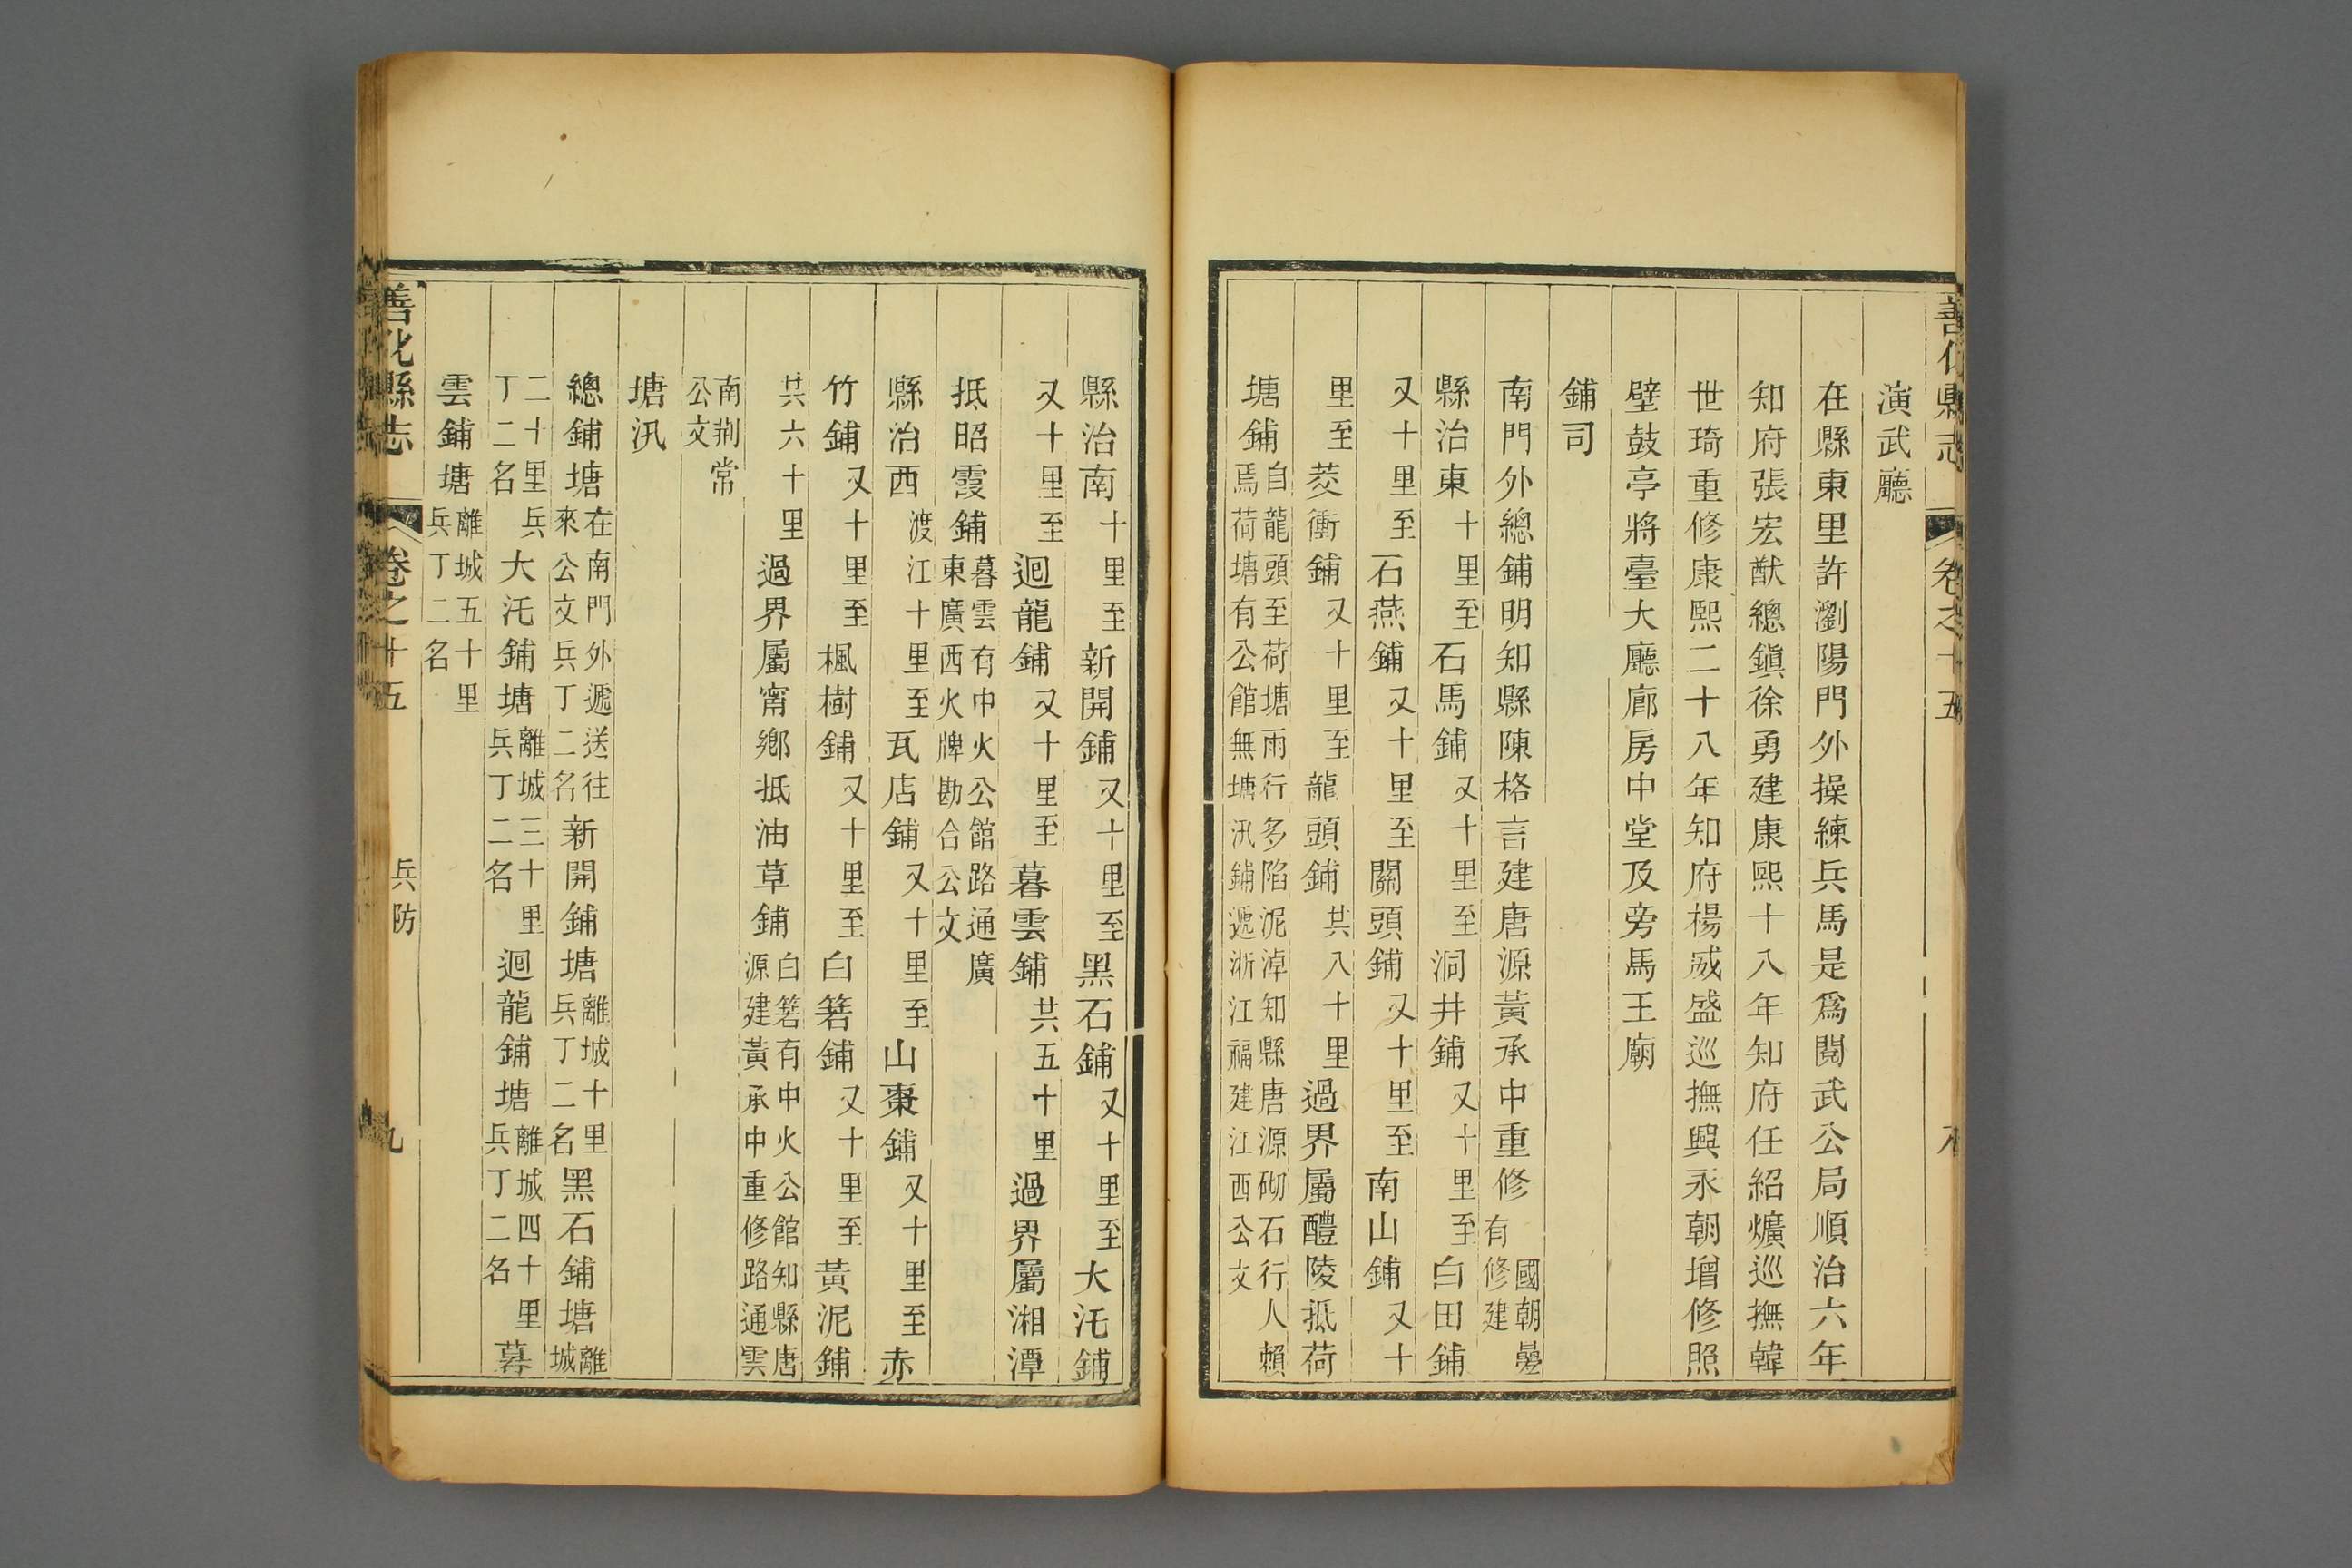 善化縣志 卷之十五
演武廳
在縣東里許瀏陽門外操練兵馬是爲閱武公局順治六年
知府張宏猷總鎮徐勇建康熙十八年知府任紹爌巡撫韓
世琦重修康熙二十八年知府楊威盛巡撫興永朝增修照
壁鼓亭將臺大廳廊房中堂及旁馬王廟
鋪司
南門外總鋪明知縣陳格言建唐源黃承中重修國朝曼有修建
縣治東十里至石馬鋪又十里至洞井鋪又十里至白田鋪
又十里至石燕鋪又十里至關頭鋪又十里至南山鋪又十
里至茭衝鋪又十里至龍頭鋪共八十里過界屬醴陵抵荷
塘鋪自龍頭至荷塘雨行多陷泥淖知縣唐源砌石行人賴焉荷塘有公館無塘汛鋪遞浙江福建江西公文
縣治南十里至新開鋪又十里至黑石鋪又十里至大汑鋪
又十里至迴龍鋪又十里至暮雲鋪共五十里過界屬湘潭
抵昭霞鋪暮雲有中火公館路通廣東廣西火牌勘合公文
縣治西渡江十里至瓦店鋪又十里至山棗鋪又十里至赤
竹鋪又十里至楓樹鋪又十里至白箬鋪又十里至黃泥鋪
共六十里過界屬甯鄉抵油草鋪白箬有中火公館知縣唐源建黃承中重修路通雲
南荆常公文
塘汛
總鋪塘在南門外遞送往來公文兵丁二名新開鋪塘離城十里兵丁二名黑石鋪塘離城
二十里兵丁二名大汑鋪塘離城三十里兵丁二名迴龍鋪塘離城四十里兵丁二名暮
雲鋪塘離城五十里兵丁二名
善化縣志 卷之十五 兵防 九